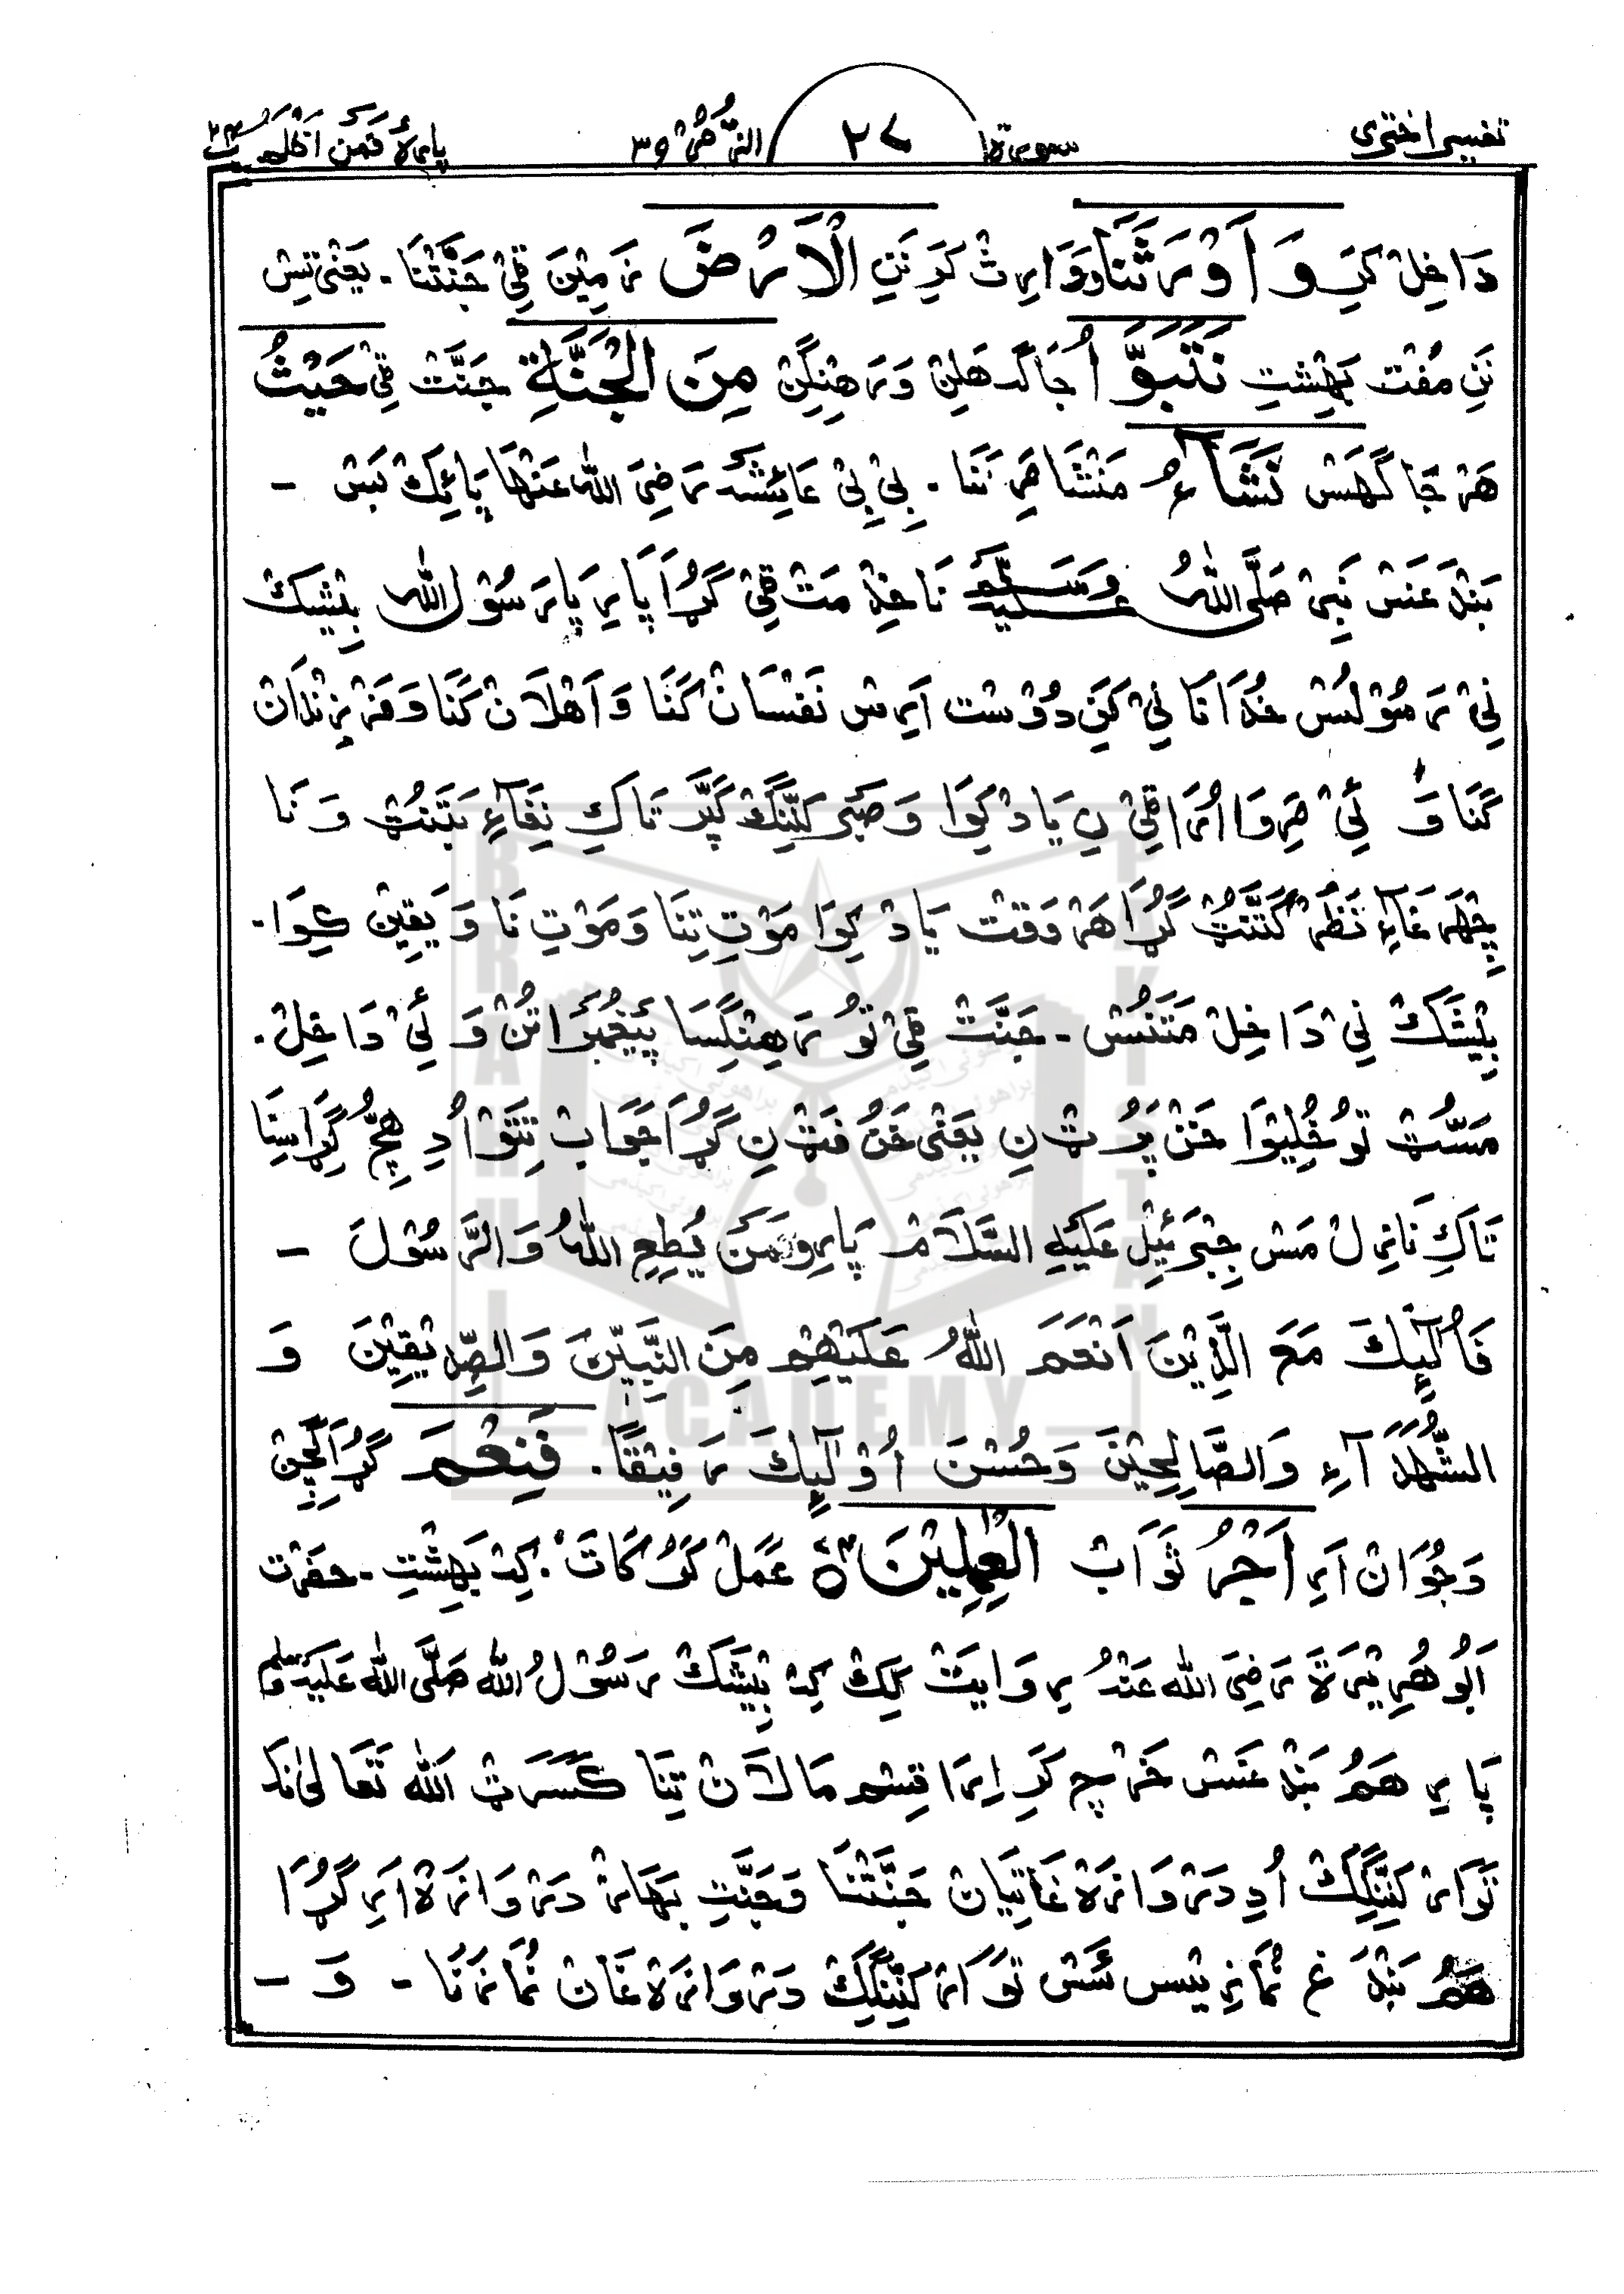 تفسیر اختری سورة الزُّمَرْ ٣٩ ٢٧ پارہ فَمَنْ اَظْلَمُ ٢٤
دَاخِلْ کرے وَ اَوْرَثَنَا وَوَارِثْ کَرِ نَنِ الْاَرْضَ زَمِیْنَ ٹِیْ جَنَّتْنَا۔ یَعْنِیْ تِس
نَنِ مُفْت بَہِشتِ نَتَبَوَّاُ جَاگہ ھَلِنْ وَرَھِنِگِنْ مِنَ الْجَنَّةِ جَنَّتْ ٹِیْ حَیْثُ
ھَرْ جَاگَہَسْ نَشَآءُ مَنْشَا مَرِ نَنَا۔ بِیْ بِیْ عَائِشَہ رَضِیَ اللّٰہُ عَنْھَا پَائِکْ بَسْ ۔
بَنْدَغَسْ نَبِیْ صَلَّی اللّٰہُ عَلَیْہِ وَسَلَّمَ نَا خِدْمَتْ ٹِیْ گُڑَا پَارِ یَا رَسُوْلَ اللّٰہ بِیْشَکْ
نِیْ رَسُوْلُسْ خُدَانَا نِیْ کَنِ دُوْسْت اَرِسْ نَفْسَانْ کَنَا وَ اَھْلَانْ کَنَا وَ فَرْزِنْدَانْ
کَنَا وَ ئِیْ مَرِوَا اُرَاٹِیْ نِ یَادْ کِوَا وَ صَبَر کَنِّنِگْ کَپَّرْ تَاکِ نِغَاءِ بَتَنُٹ وَ نَا
چِھْرَغَاءِ نَظَرْ کَتَنُٹ گُڑَا ھَرْوَقْت یَادْ کِوَا مَوْتِ تِنَا وَمَوْتِ نَا وَ یَقِیْن کِوَا۔
بِیْشَکْ نِیْ دَاخِلْ مَتَنُسْ ۔ جَنَّتْ ٹِیْ تَوْ رَھِنْگِسَا پَیْغَمْبَرَاتُنْ وَ ئِیْ دَاخِلْ۔
مَسُّٹ تَوْ خُلِیْوَا خَنْپَرُٹْ نِ یَعْنِیْ خَنُفَٹْ نِ گُڑَا جَوَابْ تِتَوْ اُدِ ھِچُّ گُڑَاسِنَا
تَاکِ نَازِلْ مَسْ جِبْرَئِیْل عَلَیْہِ السَّلَامْ پَارِ وَمَنْ یُطِعِ اللّٰہَ وَالرَّسُوْلَ ۔
فَاُولٰٓئِكَ مَعَ الَّذِیْنَ اَنْعَمَ اللّٰہُ عَلَیْھِمْ مِنَ النَّبِیّٖنَ وَالصِّدِّیْقِیْنَ وَ
الشُّھَدَآءِ وَالصَّالِحِیْنَ وَحُسْنَ اُوْلٰٓئِكَ رَفِیْقًا۔ فَنِعْمَ گُڑَا جِنْ
وَجُوَانْ اَرِ اَجْرُ ثَوَابْ الْعٰمِلِیْنَ عَمَلْ کَرُکَاتَ۔ کِہ بَہِشْتِ ۔ حضرت
اَبُوْ ھُرِیْرَةَ رَضِیَ اللّٰہُ عَنْہُ رِوَایَتْ کِکْ کِہ بِیْشَکْ رَسُوْلُ اللّٰہ صَلَّی اللّٰہ عَلَیْہِ وسلم
پَارِ ھَمُ بَنْدَغَسْ خَرْچ کَرِ اِرَا قِسْم مَالَانْ تِنَا کَسَرْٹ اللّٰہ تَعَالٰی نَہ
تَوَارْ کَنِّنِگِکْ اُدِ دَرْوَازَہ غَاتِیَانْ جَنَّتْنَا وَ جَنَّتِ بَھَازْ دَرْوَازَہ اَرِ گُڑَا
ھَمُ بَنْدَغ نُمَازِیْس سَسْ تَوَارْ کَنِّنِگِکْ دَرْوَازَہ غَانْ نُمَازَنَا ۔ وَ ۔
BRAHUI
ACADEMY
PAKISTAN